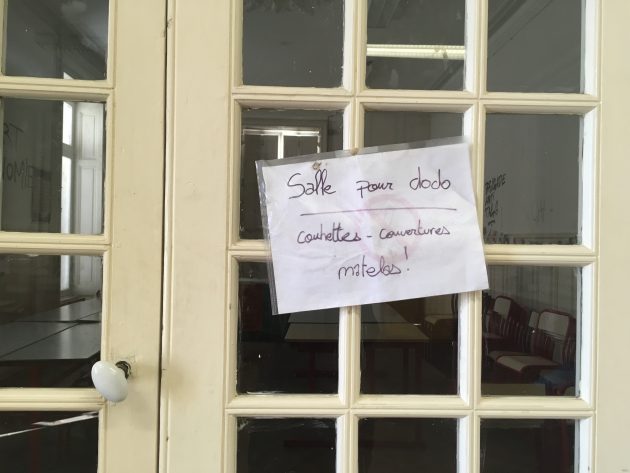 Salle pour dodo
couchettes - couvertures
matelas!